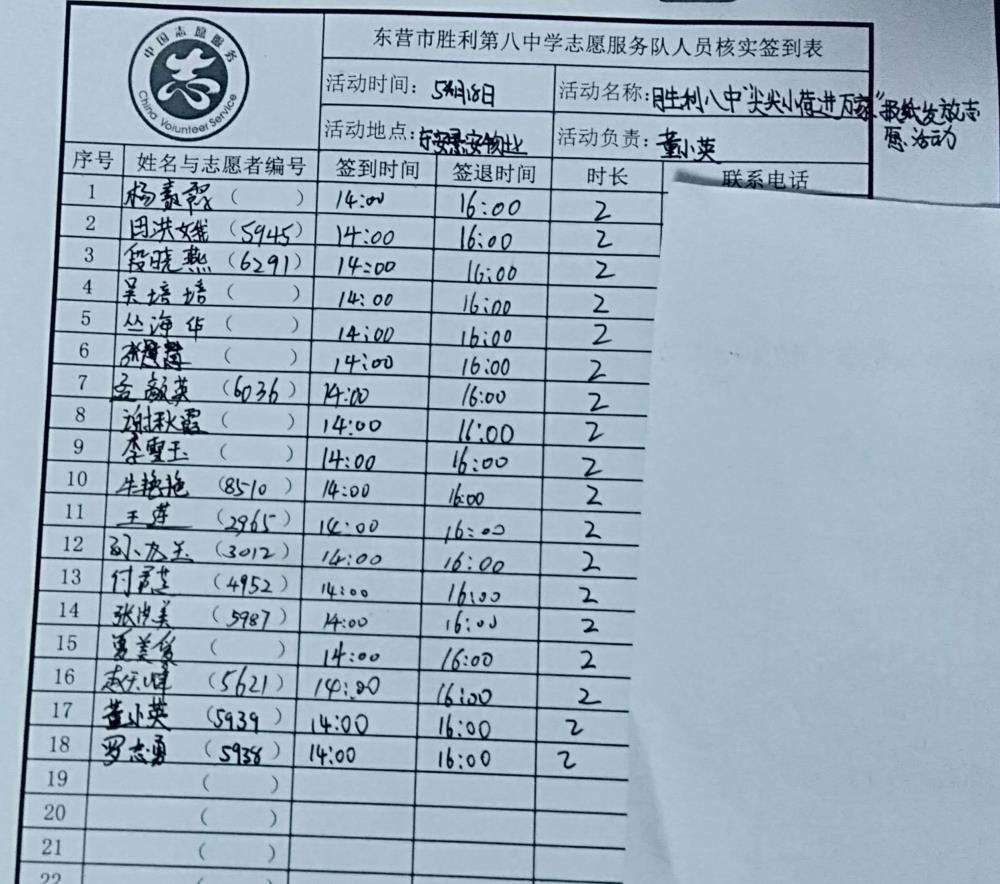 中国志愿服务
志
China Volunteer Service
东营市胜利第八中学志愿服务队人员核实签到表
活动时间: 5月18日
活动名称: 胜利八中"尖尖小荷进万家"报纸发放志
愿活动
活动地点: 物业
活动负责: 董小英
序号 姓名与志愿者编号 签到时间 签退时间 时长 联系电话
1 杨 ( ) 14:00 16:00 2
2 田洪娥 (5945) 14:00 16:00 2
3 段晓燕 (6291) 14:00 16:00 2
4 吴培培 ( ) 14:00 16:00 2
5 丛海华 ( ) 14:00 16:00 2
6 张 ( ) 14:00 16:00 2
7 孟颖英 (6036) 14:00 16:00 2
8 谢秋霞 ( ) 14:00 16:00 2
9 李雪玉 ( ) 14:00 16:00 2
10 牛艳艳 (8510) 14:00 16:00 2
11 王莲 (2965) 14:00 16:00 2
12 (3012) 14:00 16:00 2
13 付 (4952) 14:00 16:00 2
14 张洪美 (5987) 14:00 16:00 2
15 夏美 ( ) 14:00 16:00 2
16 赵 (5621) 14:00 16:00 2
17 董小英 (5939) 14:00 16:00 2
18 罗志勇 (5938) 14:00 16:00 2
19 ( )
20 ( )
21 ( )
22